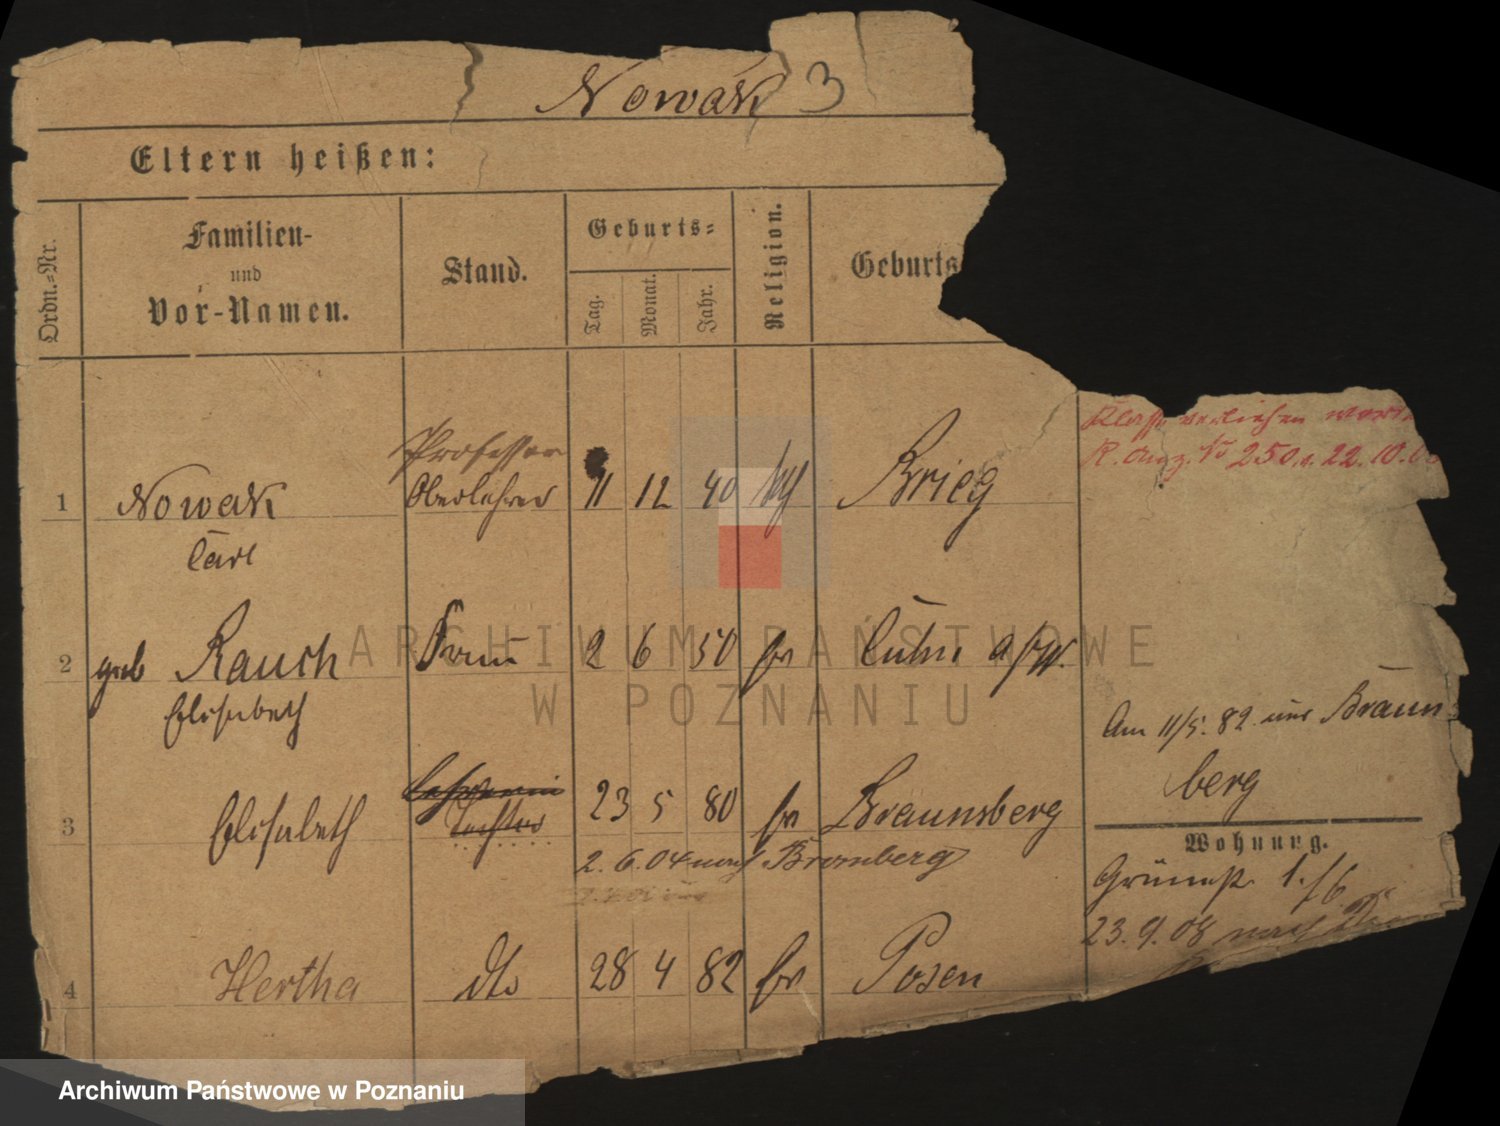 Nowak 3
Eltern heißen:
Ordn.-Nr.
Familien-
und
Vor-Namen.
Stand.
Geburts-
Tag.
Monat.
Jahr.
Religion.
Geburts
Klasse verliehen
R. Anz. № 250. v. 22. 10.
Professor
1 Nowak Oberlehrer 11 12 40 Brieg
Carl
2 geb Rauch Frau 2 6 50 Culm a/W.
Elisabeth
Am 11/5. 82. aus Braun
berg
3 Elisabeth Tochter 23 5 80 Braunsberg
2. 6. 04 nach Bromberg
Wohnung.
Grünestr. 1./6
23. 9. 08 nach
4 Hertha dto 28 4 82 Posen
ARCHIWUM PAŃSTWOWE
W POZNANIU
Archiwum Państwowe w Poznaniu